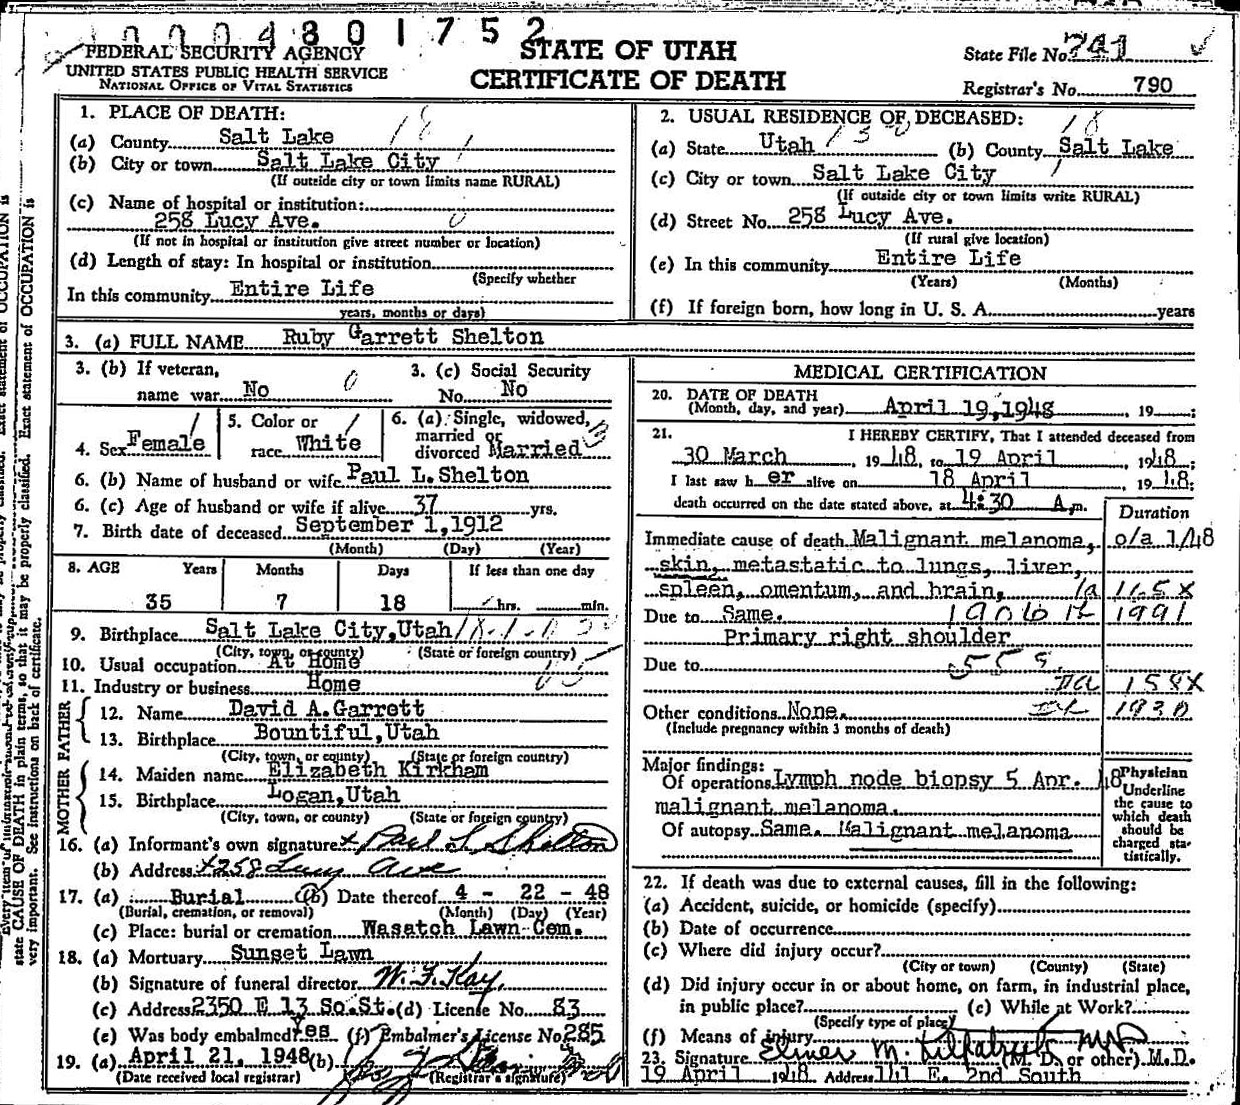 0004801752
FEDERAL SECURITY AGENCY
UNITED STATES PUBLIC HEALTH SERVICE
NATIONAL OFFICE OF VITAL STATISTICS
STATE OF UTAH
CERTIFICATE OF DEATH
State File No. 741
Registrar's No. 790
1. PLACE OF DEATH:
(a) County Salt Lake 18
(b) City or town Salt Lake City
(If outside city or town limits name RURAL)
(c) Name of hospital or institution:
258 Lucy Ave. 0
(If not in hospital or institution give street number or location)
(d) Length of stay: In hospital or institution
(Specify whether
In this community Entire Life
years, months or days)
2. USUAL RESIDENCE OF DECEASED:
(a) State Utah (b) County Salt Lake 18
(c) City or town Salt Lake City
(If outside city or town limits write RURAL)
(d) Street No. 258 Lucy Ave.
(If rural give location)
(e) In this community Entire Life
(Years) (Months)
(f) If foreign born, how long in U. S. A. years
3. (a) FULL NAME Ruby Garrett Shelton
3. (b) If veteran,
name war No 0
3. (c) Social Security
No. No
4. Sex Female
5. Color or
race White
6. (a) Single, widowed,
married or
divorced Married
6. (b) Name of husband or wife Paul L. Shelton
6. (c) Age of husband or wife if alive 37 yrs.
7. Birth date of deceased September 1, 1912
(Month) (Day) (Year)
8. AGE Years Months Days If less than one day
35 7 18 hrs. min.
9. Birthplace Salt Lake City, Utah
(City, town, or county) (State or foreign country)
10. Usual occupation At Home
11. Industry or business Home
FATHER
12. Name David A. Garrett
13. Birthplace Bountiful, Utah
(City, town, or county) (State or foreign country)
MOTHER
14. Maiden name Elizabeth Kirkham
15. Birthplace Logan, Utah
(City, town, or county) (State or foreign country)
16. (a) Informant's own signature x Paul L. Shelton
(b) Address x 258 Lucy Ave
17. (a) Burial (b) Date thereof 4 - 22 - 48
(Burial, cremation, or removal) (Month) (Day) (Year)
(c) Place: burial or cremation Wasatch Lawn Cem.
18. (a) Mortuary Sunset Lawn
(b) Signature of funeral director W. F. Kay
(c) Address 2350 E 13 So. St. (d) License No. 83
(e) Was body embalmed? Yes (f) Embalmer's License No. 285
19. (a) April 21, 1948 (b)
(Date received local registrar) (Registrar's signature)
MEDICAL CERTIFICATION
20. DATE OF DEATH
(Month, day, and year) April 19, 1948, 19 ;
21. I HEREBY CERTIFY, That I attended deceased from
30 March, 1948, to 19 April 1948;
I last saw her alive on 18 April 1948;
death occurred on the date stated above, at 4:30 A.m.
Duration
Immediate cause of death Malignant melanoma, o/a 1/48
skin, metastatic to lungs, liver,
spleen, omentum, and brain,
Due to Same.
1991
Primary right shoulder
Due to
IIa 158X
Other conditions None.
1930
(Include pregnancy within 3 months of death)
Major findings:
Of operations Lymph node biopsy 5 Apr. 48
malignant melanoma.
Of autopsy Same. Malignant melanoma
Physician
Underline
the cause to
which death
should be
charged sta-
tistically.
22. If death was due to external causes, fill in the following:
(a) Accident, suicide, or homicide (specify)
(b) Date of occurrence
(c) Where did injury occur?
(City or town) (County) (State)
(d) Did injury occur in or about home, on farm, in industrial place,
in public place? (e) While at Work?
(Specify type of place)
(f) Means of injury
23. Signature Elmer M. Kilpatrick MD (M. D. or other) M.D.
19 April 1948 Address 141 E. 2nd South
state CAUSE OF DEATH in plain terms, so that it may be properly classified. Exact statement of OCCUPATION is
very important. See instructions on back of certificate.